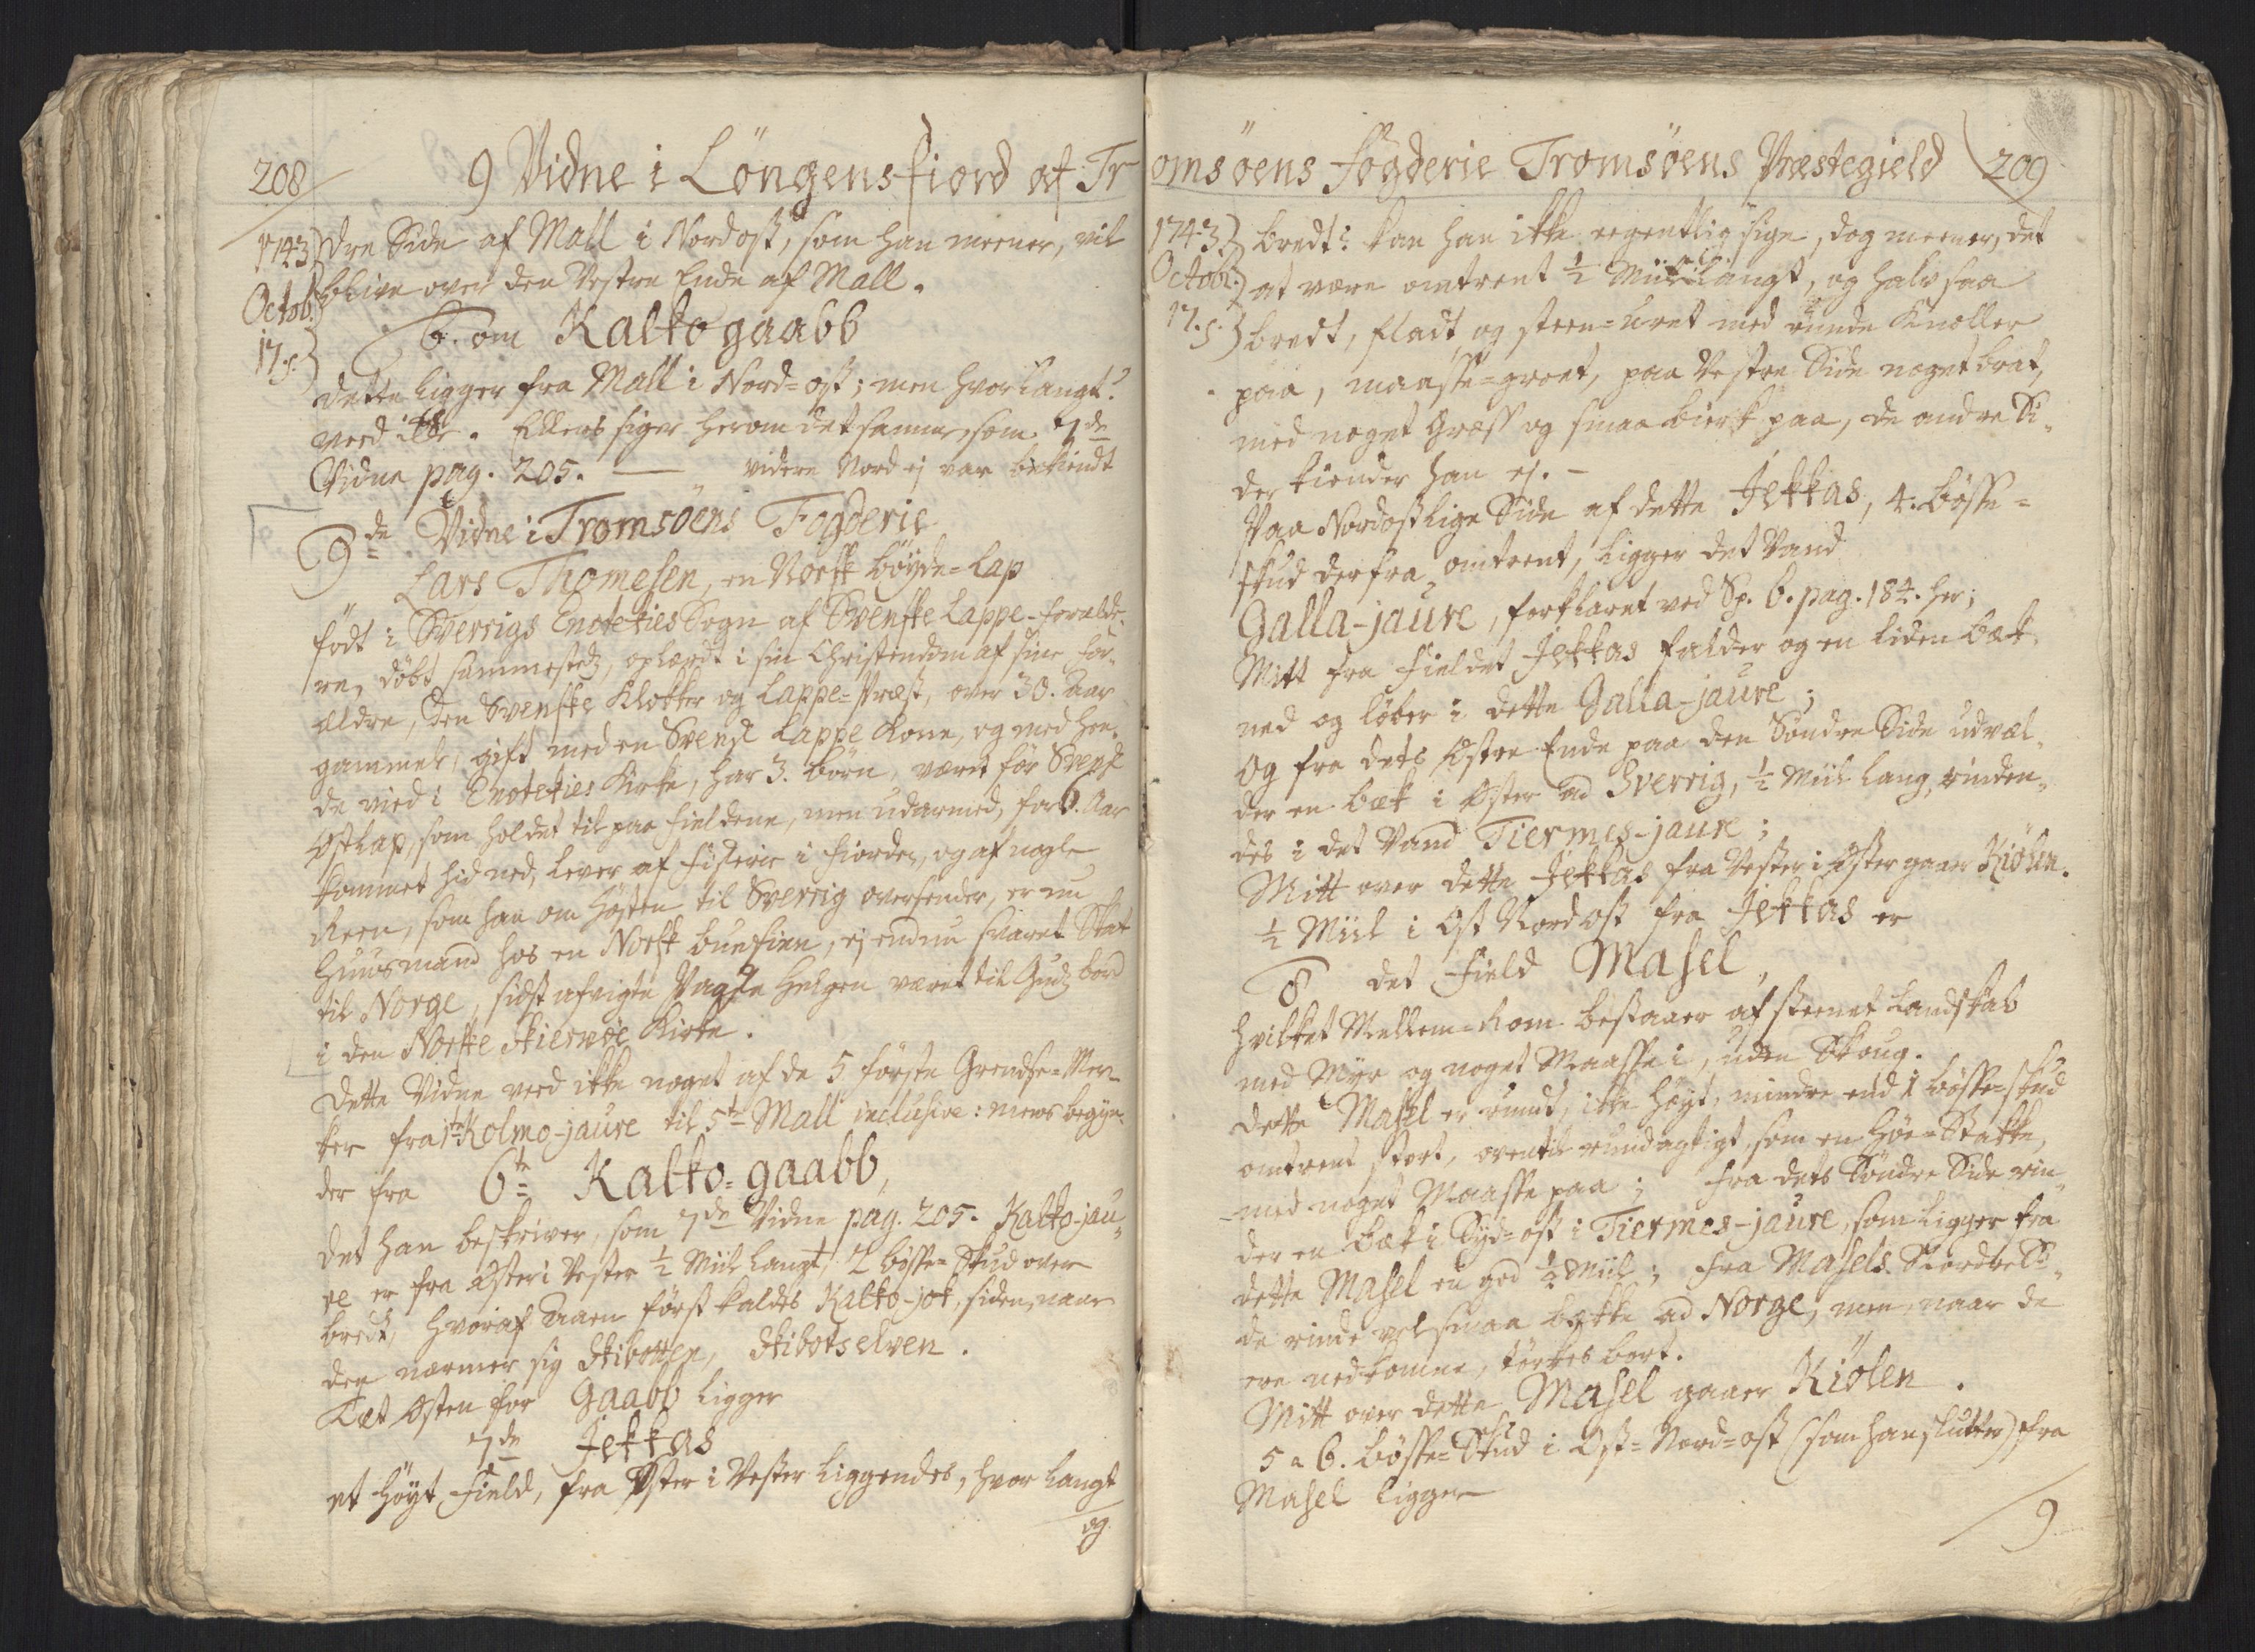 208
9 Vidne i Löngensfiord af Tr
1743
Octob.
17. s.
dre Side af Mall i Nordost, som han meener, vil
blive over den Vestre Ende af Mall.
6. om Kaltogaabb
dette ligger fra Mall i Nord-ost; men hvor langt?
veed ikke. Ellers siger herom det samme, som 7de
Vidne pag. 205. — videre Nord ej var bekiendt
9de Vidne i Tromsöens Fogderie
Lars Thomesen, en Norsk böyde-Lap
födt i Sverrigs Enotekies Sogn af Svenske Lappe-foreldre
re, döbt sammestedz, oplærdt i sin Christendom af sine For-
ældre, den Svenske Klokker og Lappe-Præst, over 30. Aar
gammel, gift med en Svensk Lappe Kone, og med hen-
de vied i Enotekies Kirke, har 3. börn, været för Svensk
Ostlap, som holdet til paa Fieldene, men udarmed, for 6. Aar
kommet hid ned, lever af Fiskerie i Fiorden, og af nogle
Reen, som han om Hösten til Sverrig oversender, er nu
Huusmand hos en Norsk buefinn, ej endnu svaret Skat
til Norge, sidst afvigte Paaske Helgen været til Gudz bord
i den Norske Skiervöe Kirke.
Dette Vidne veed ikke noget af de 5 förste Grendse-Mer-
ker fra 1te Kolmo-jaure til 5te Mall inclusive: mens begyn-
der fra 6te Kalko-gaabb,
det han beskriver, som 7de Vidne pag. 205. Kalko-jau-
re er fra Öster i Vester ½ Miil langt, 2 bösse-Skud over
bredt, hvoraf Aaen först kaldes Kalko-jok, siden, naar
den nærmer sig Skibotten, Skibotselven.
Læt Osten for Gaabb ligger
7de Jekkas
et höyt Field, fra Öster i Vester liggendes, hvor langt
og
omsöens Fögderie Tromsöens Præstegield
209
1743
Octob.
17. s.
bredt? kan han ikke eegentlig sige, dog meener, det
at være omtrent ½ Miil langt, og halv saa
bredt, fladt og steen-uret med runde Knoller
paa, maasse-groet, paa Vestre Side noget brat,
med noget Græss og smaa birk paa, de andre Si-
der kiender han ej. —
Paa Nordostlige Side af dette Jekkas, 4. bösse-
skud derfra omtrent, ligger det Vand
Galla-jaure, forklaret ved Sp. 6. pag. 184. her;
Mitt fra Fieldet Jekkas falder og en liden bæk
ned og löber i dette Galla-jaure;
Og fra dets Östre Ende paa den Söndre Side udvæl-
der en bæk i Öster ad Sverrig, ½ Miil lang, rinden-
des i det Vand Tiermes-jaure;
Mitt over dette Jekkas fra Vester i Öster gaaer Kiölen.
½ Miil i Ost Nordost fra Jekkas er
8 det Field Masel,
hvilket Mellem-Rom bestaaer af steenet Landskab
med Myr og noget Maasse i, uden Skoug.
Dette Masel er rundt, ikke höyt, mindre end 1 bösse-skud
omtrent stort, oventil rundagtigt, som en Höe-Stakke,
med noget Maasse paa; fra dets Söndre Side rin-
der en bæk i Syd-ost i Tiermes-jaure, som ligger fra
dette Masel en god ¼ Miil; fra Masels Nordre Si-
de rinde vel smaa bække ad Norge, men, naar de
ere nedkomne, törkes bort.
Mitt over dette Masel gaaer Kiölen.
5 a 6. bösse-Skud i Ost-Nord-ost (som han slutter) fra
Masel ligger
9